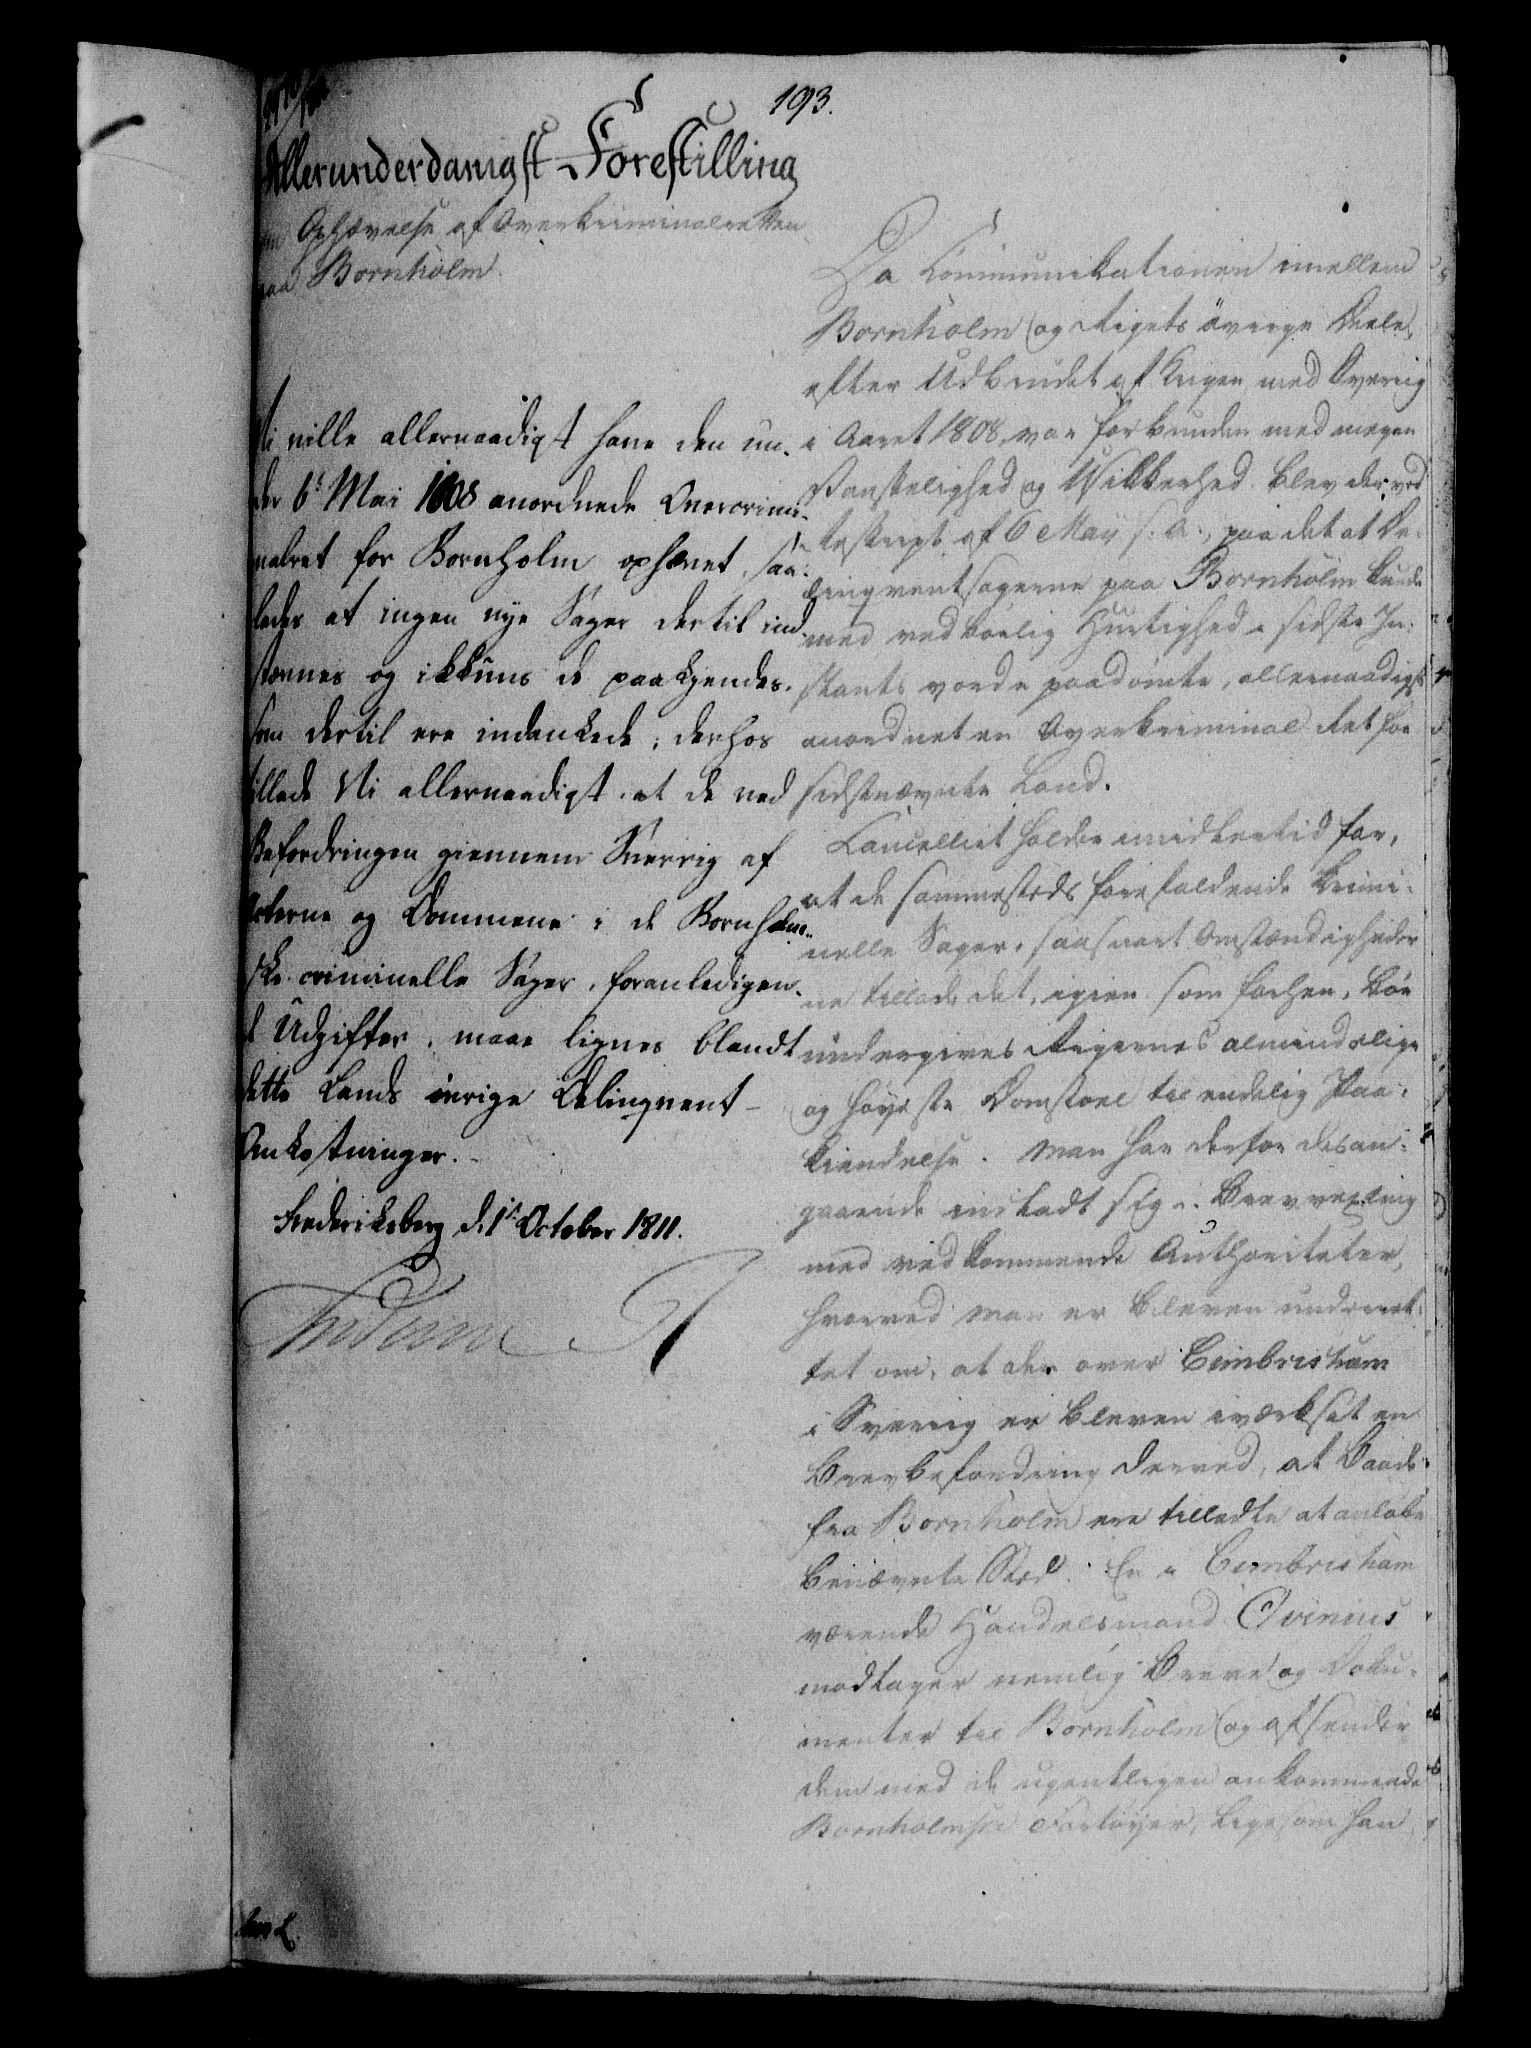 193.
Allerunderdanigst Forestilling
om Ophævelse af Overkriminalretten
paa Bornholm.
Vi ville allernaadigst have den un-
der 6te Mai 1808 anordnede Overcrimi-
nalret for Bornholm ophævet, saa-
ledes at ingen nye Sager dertil ind-
stævnes og ikkuns de paakjendes,
som dertil ere indankede; derhos
tillade Vi allernaadigst at de ved
Befordringen giennem Sverrig af
Acterne og Dommene i de Bornholm-
ske criminelle Sager, foranledigen-
de Udgifter, maae lignes blandt
dette Lands øvrige Delinqvent-
Omkostninger.
Frederiksberg d. 1ste October 1811.
Frederik R
Da Kommunikationen imellem
Bornholm og Rigets övrige Deele,
efter Udbrudet af Krigen med Sverrig
i Aaret 1808, var forbunden med megen
Vanskelighed og Usikkerhed, blev der ved
Reskript af 6 May s. A., paa det at De-
linqventsagerne paa Bornholm kunde
med vedbørlig Hurtighed i sidste In-
stants vorde paadømte, allernaadigst
anordnet en Overkriminal Ret for
sidstnævnte Land.
Cancelliet holder imidlertid for,
at de sammesteds forefaldende krimi-
nelle Sager, saasnart Omstændigheder-
ne tillade det, igien som forhen, bör
undergives Rigernes almindelige
og höyeste Domstoel til endelig Paa-
kiendelse. Man har derfor desan-
gaaende indladt sig i Brevvexling
med vedkommende Authoriteter,
hvorved man er bleven underret-
tet om, at der over Cimbrisham
i Sverrig er bleven iværksat en
Brevbefordring derved, at Baade
fra Bornholm ere tilladte at anløbe
benævnte Sted. En i Cimbrisham
værende Handelsmand Ovinius
modtager nemlig Breve og Doku-
menter til Bornholm og afsender
dem med de ugentligen ankommende
Bornholmske Fartöyer, ligesom han